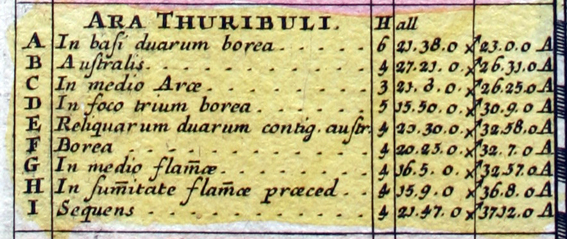 ARA THURIBULI. H all
A In baſi duarum borea . . . . . 6 ♐ 23.0.0 A
B Auſtralis . . . . . . . . . . 4 27.21.0 ♐ 26.31.0 A
C In medio Aræ . . . . . . . . 3 ♐ 26.25.0 A
D In foco trium borea . . . . . . 5 15.50.0 ♐ 30.9.0 A
E Reliquarum duarum contig. auſtr. 4 ♐ 32.58.0 A
F Borea . . . . . . . . . . . 4 20.23.0 ♐ 32.7.0 A
G In medio flam̄æ . . . . . . . 4 16.5.0 ♐ 32.57.0 A
H In ſum̄itate flam̄æ præced . . 4 15.9.0 ♐ 36.8.0 A
I Sequens . . . . . . . . . . 4 21.47.0 ♐ 3712.0 A